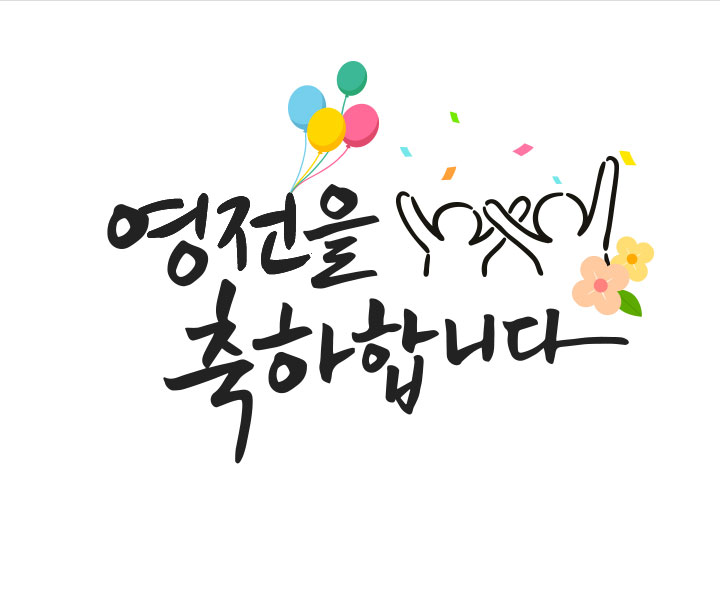 영전을
축하합니다